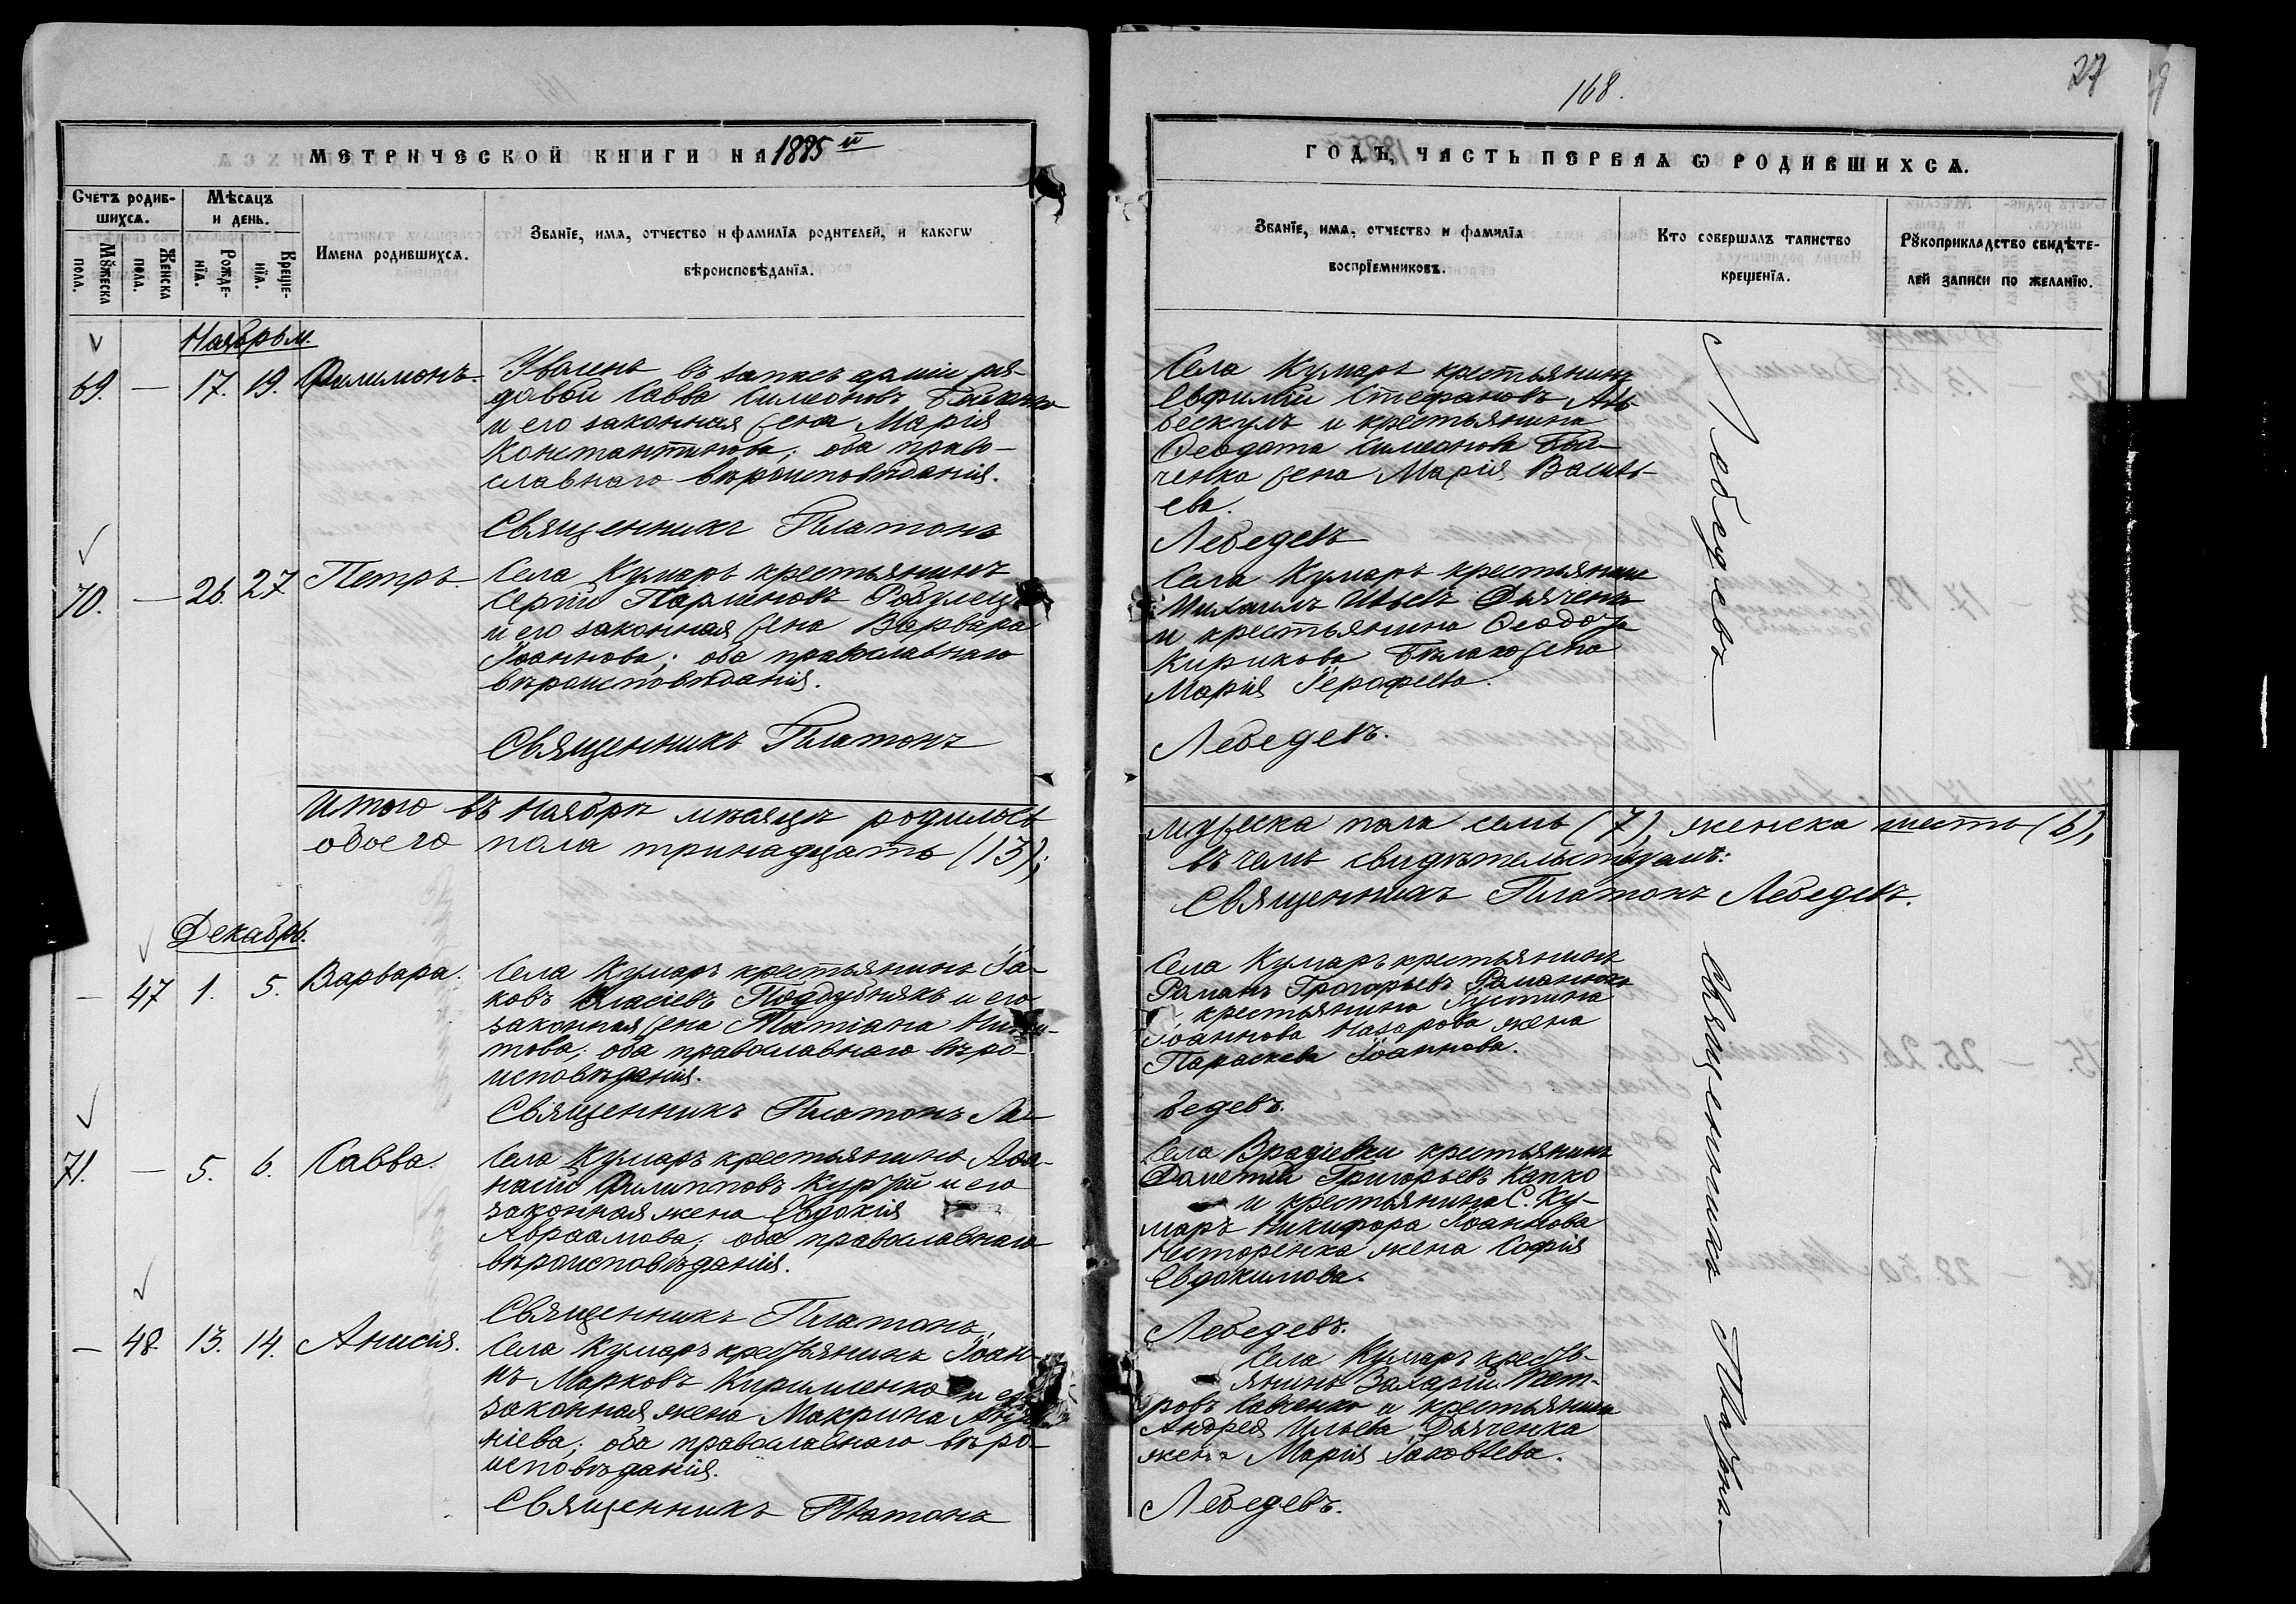 168.
27
МЕТРИЧЕСКОЙ КНИГИ НА 1885 й
ГОДЪ, ЧАСТЬ ПЕРВАЯ Ѡ РОДИВШИХСЯ.
Счетъ родив-
шихся.
Мѣсяцъ
и день.
Мȣжеска
пола.
Женска
пола.
Рожде-
нїя.
Креще-
нїя.
Имена родившихся.
Званїе, имя, отчество и фамилїя родителей, и какогѡ
вѣроисповѣданїя.
Званїе, имя, отчество и фамилїя
воспрїемниковъ.
Кто совершалъ таинство
крещенїя.
Рȣкоприкладство свидѣте-
лей записи по желанїю.
Ноябрь м.
69. — 17. 19. Филимонъ.
Уволенъ въ запасъ арміи ря-
довой Савва Симеоновъ
и его законная жена Марія
Константинова; оба право-
славнаго вѣроисповѣданія.
Священникъ Платонъ
Села Кумаръ крестьянинъ
Евфимій Стефановъ
и крестьянина
Феодота Симеонова Бой-
ченка жена Марія Василь-
ева.
Лебедевъ
70. — 26. 27 Петръ.
Села Кумаръ крестьянинъ
Сергій Парѳеновъ
и его законная жена Варвара
Іоаннова; оба православнаго
вѣроисповѣданія.
Священникъ Платонъ
Села Кумаръ крестьянинъ
Михаилъ Дьяченко
и крестьянина
Кирикова жена
Марія Іерофеева.
Лебедевъ.
Лебедевъ
Итого въ Ноябрѣ мѣсяцѣ родилось
обоего пола тринадцать (13);
мужеска пола семь (7), женска шесть (6),
въ чемъ свидѣтельствуемъ:
Священникъ Платонъ Лебедевъ.
Декабрь.
— 47 1. 5. Варвара.
Села Кумаръ крестьянинъ Іа-
ковъ Власіевъ Поддубнякъ и его
законная жена Татіана
това; оба православнаго вѣро-
исповѣданія.
Священникъ Платонъ Ле-
Села Кумаръ крестьянинъ
Романъ Григорьевъ Романюкъ
крестьянина Іустина
Іоаннова Назарова жена
Параскева Іоаннова.
бедевъ.
71. — 5. 6. Савва.
Села Кумаръ крестьянинъ Аѳа-
насій Филипповъ Куржій и его
законная жена Евдокія
Авраамова; оба православнаго
вѣроисповѣданія.
Священникъ Платонъ
Села Врадіевки крестьянинъ
Дометій Григорьевъ Капко
и крестьянина С. Ку-
маръ Никифора Іоаннова
Несторенка жена Софія
Евдокимова.
Лебедевъ.
— 48. 13. 14. Анисія.
Села Кумаръ крестьянинъ Іоан-
нъ Марковъ Кириленко и его
законная жена Макрина
ніева; оба православнаго вѣро-
исповѣданія.
Священникъ Платонъ
Села Кумаръ кресть-
янинъ Захарій Пет-
ровъ Савченко и крестьянина
Андрея Ильева Дьяченка
жена Марія Іаковлева.
Лебедевъ.
Священникъ Платонъ